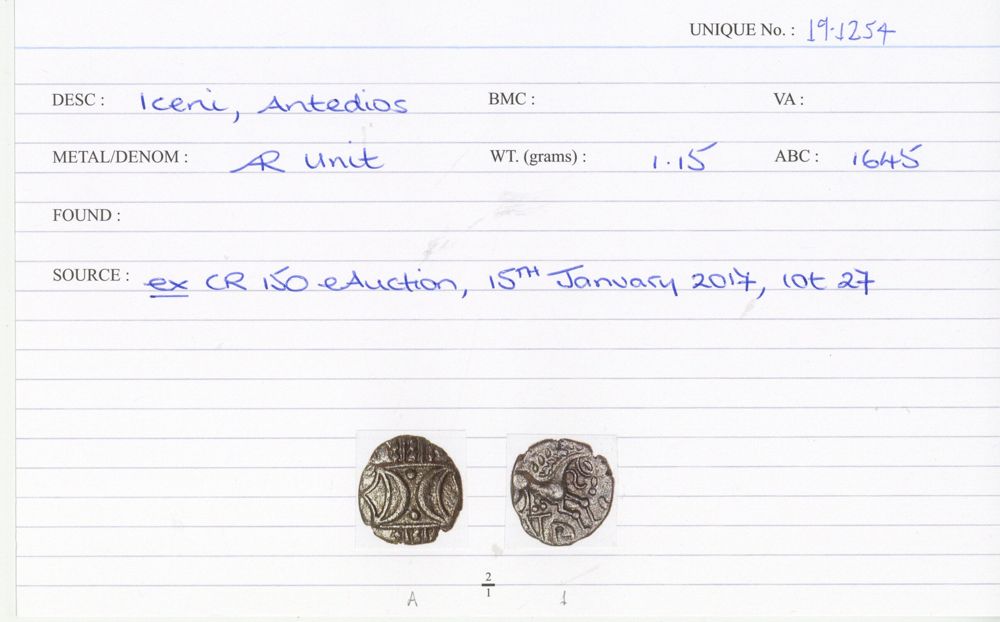 UNIQUE No. : 19.1254
DESC : Iceni, Antedios BMC : VA :
METAL/DENOM : AR Unit WT. (grams) : 1.15 ABC : 1645
FOUND :
SOURCE : ex CR 150 eAuction, 15TH January 2017, lot 27
2
1
A 1